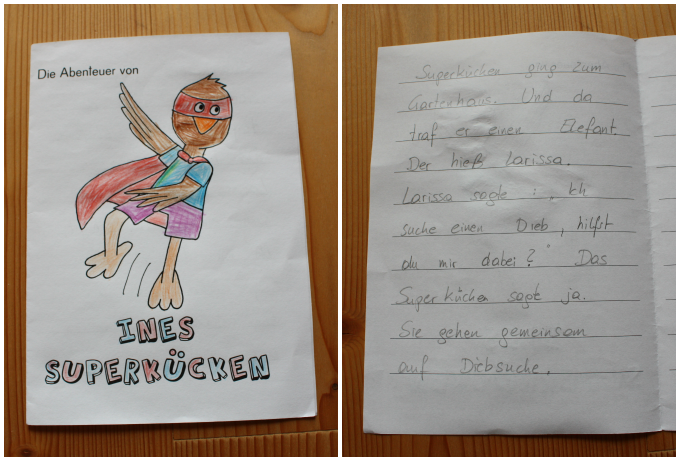 Die Abenteuer von
INES
SUPERKÜCKEN
Superkücken ging zum
Gartenhaus. Und da
traf er einen Elefant.
Der hieß Larissa.
Larissa sagte : „Ich
suche einen Dieb, hilfst
du mir dabei?" Das
Superkücken sagte ja.
Sie gehen gemeinsam
auf Diebsuche.